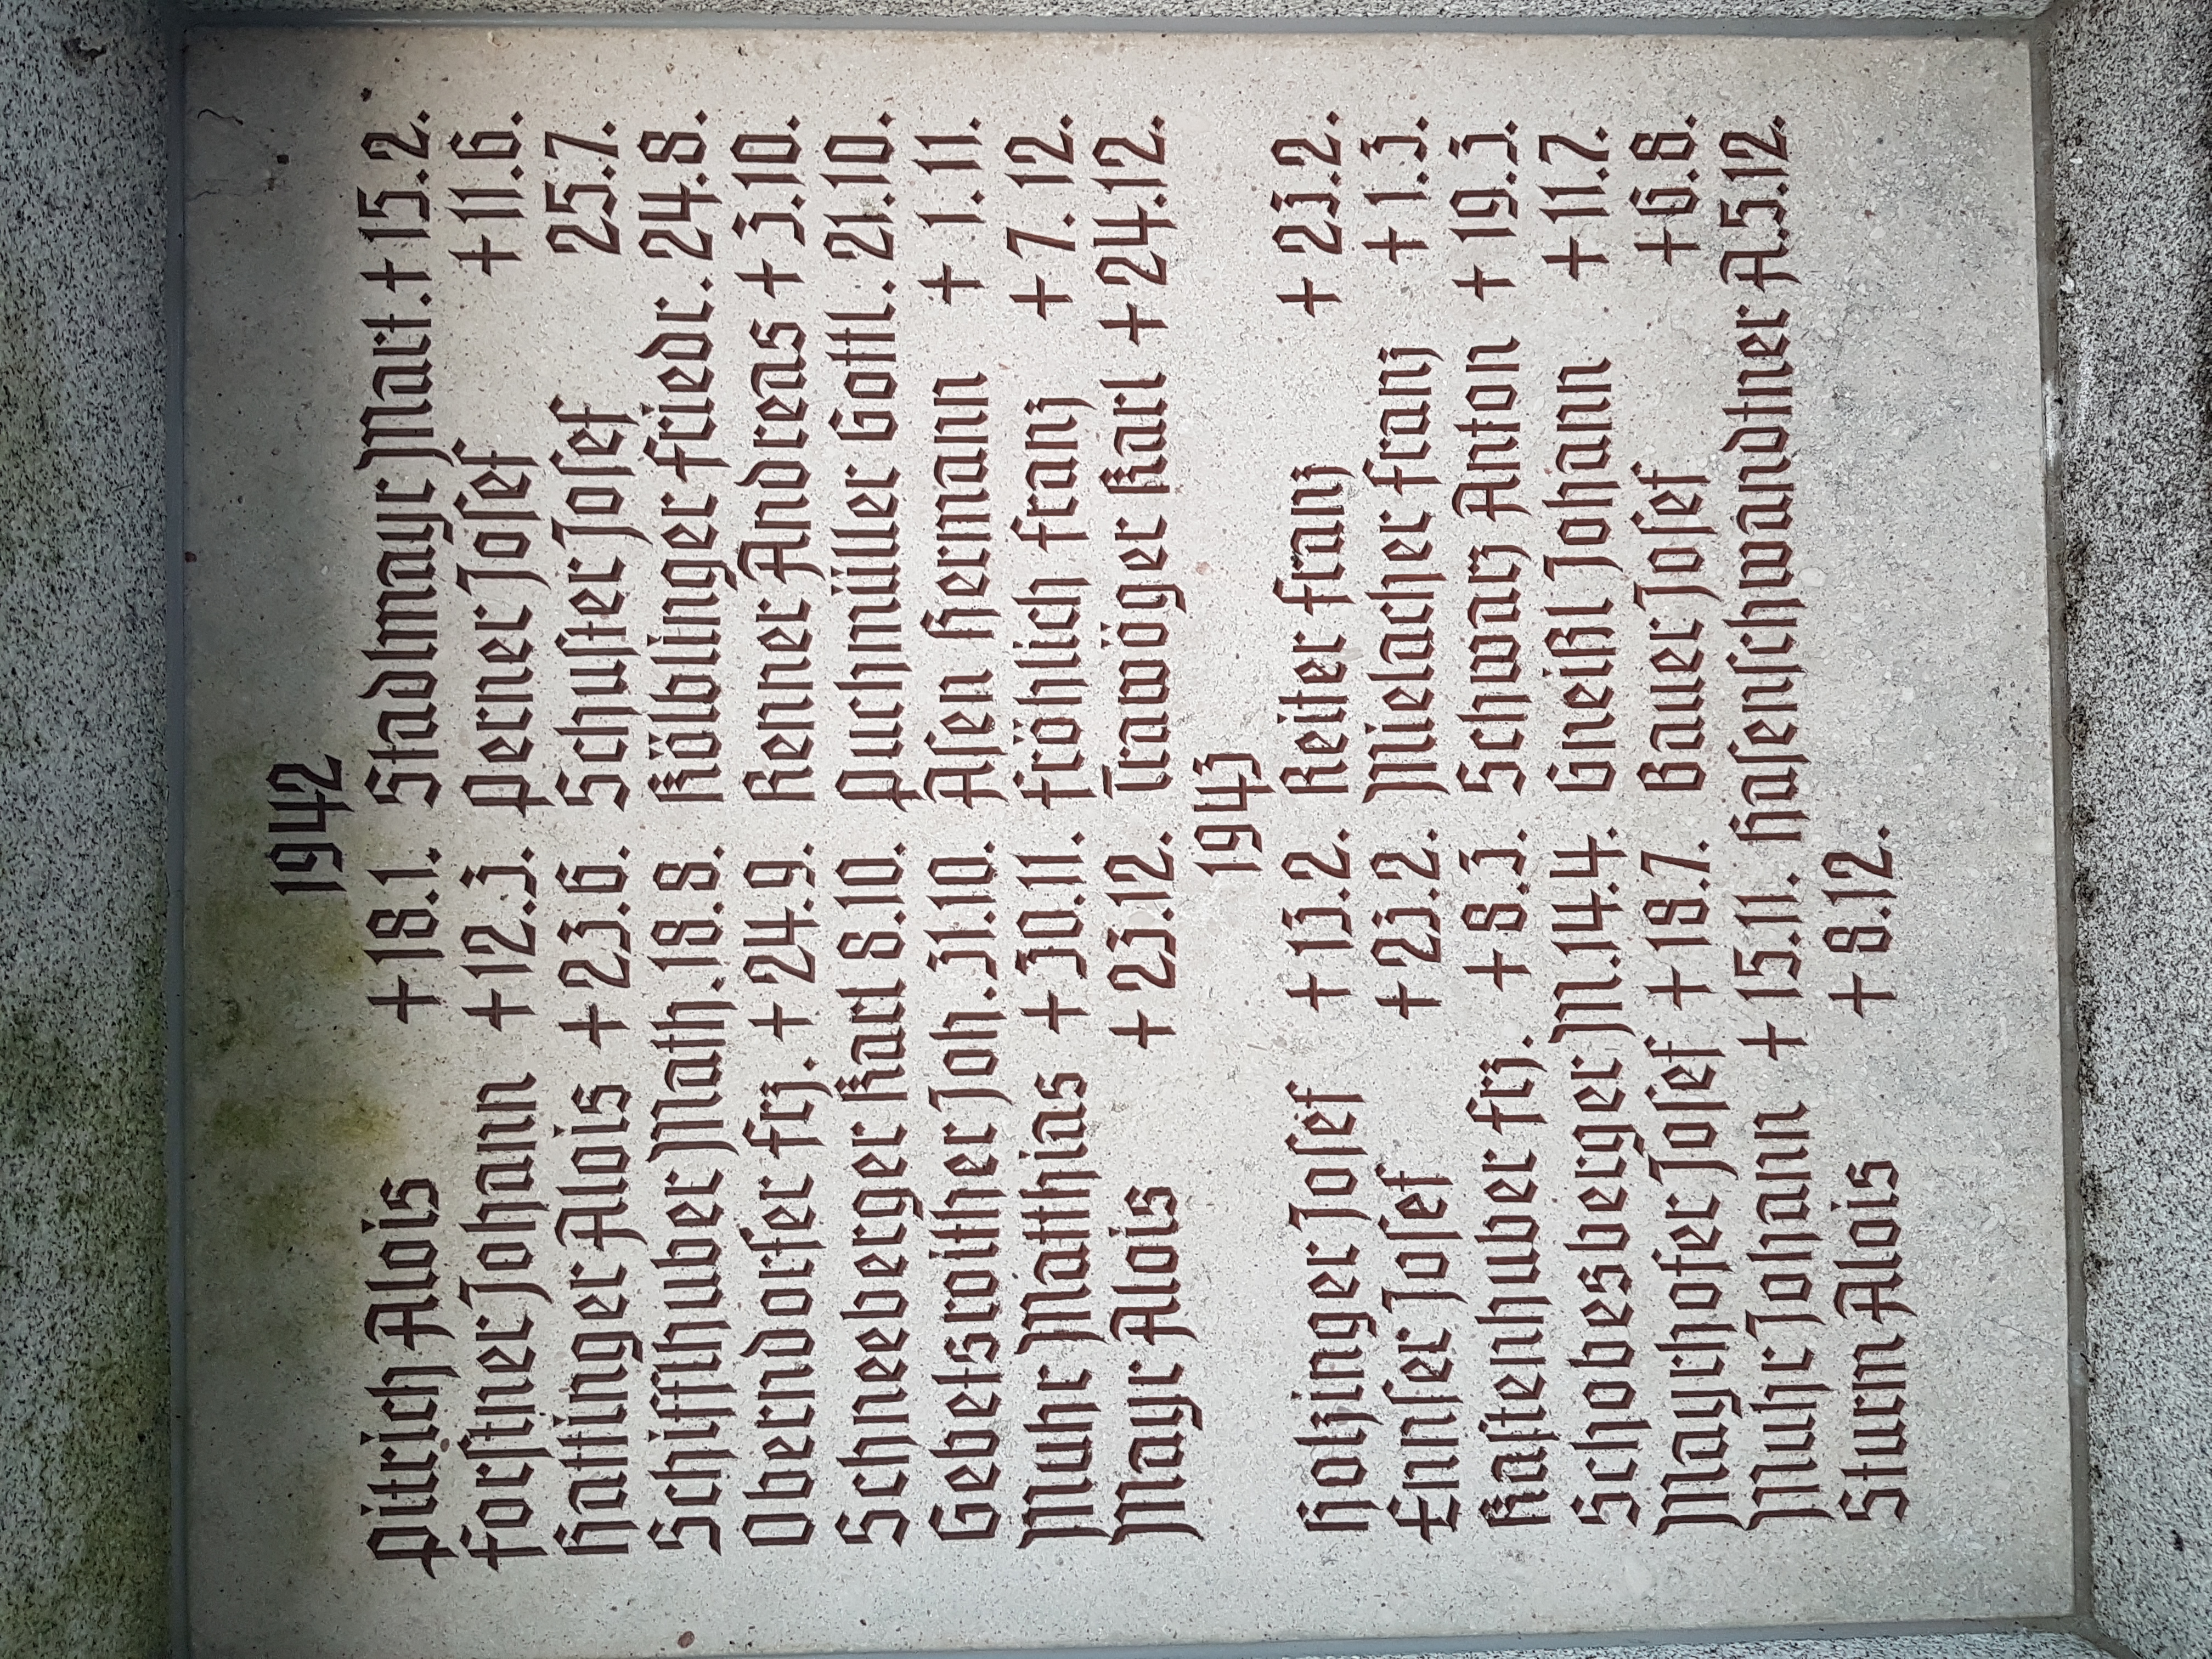 1942
Pitrich Alois +18.1. Stadlmayr Mart.+15.2.
Forstner Johann +12.3. Perner Josef +11.6.
Hattinger Alois +23.6. Schuster Josef 25.7.
Schiffthuber Math.18.8. Kölblinger Friedr.24.8.
Oberndorfer Frz.+24.9. Renner Andreas +3.10.
Schneeberger Karl 8.10. Puchmüller Gottl.21.10.
Gebetsroither Joh.31.10. Asen Hermann +1.11.
Muhr Matthias +30.11. Fröhlich Franz +7.12.
Mayr Alois +23.12. Trawöger Karl +24.12.
1943
Holzinger Josef +13.2. Reiter Franz +23.2.
Ennser Josef +23.2. Mielacher Franz +1.3.
Kastenhuber Frz.+8.3. Schwarz Anton +19.3.
Schobesberger M.14.4. Gneißl Johann +11.7.
Mayrhofer Josef +18.7. Bauer Josef +6.8.
Muhr Johann +15.11. Hasenschwandtner A.5.12.
Sturm Alois +8.12.